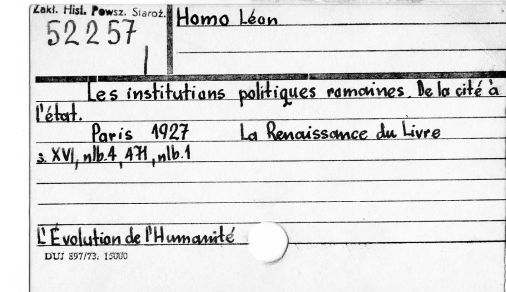 Zakł. Hist. Powsz. Staroż.
52257
Homo Léon
Les institutions politiques romaines. De la cité à
l'état.
Paris 1927 La Renaissance du Livre
s. XVI, nlb. 4, 471, nlb. 1
L'Évolution de l'Humanité
DUJ 897/73. 15000